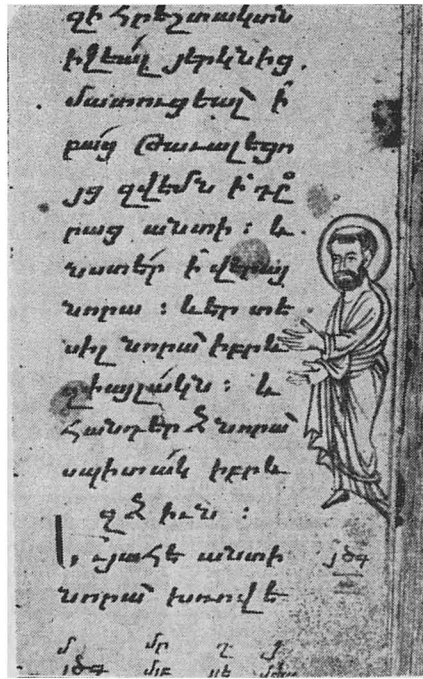 զի հրեշտակ տն
իջեալ յերկնից.
մատուցեալ ի
բաց թաւալեցո
յց զվեմն ի դը
րաց անտի : և
նստէր ի վերայ
նորա : և էր տե
սիլ նորա իբրև
զփայլակն : և
հանդերձ նորա
սպիտակ իբրև
զձիւն :
և յահէ անտի յծգ
նորա խռովե